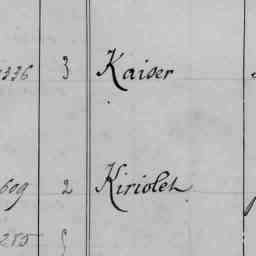 336 3 Kaiser
609 2 Kiriolet
285